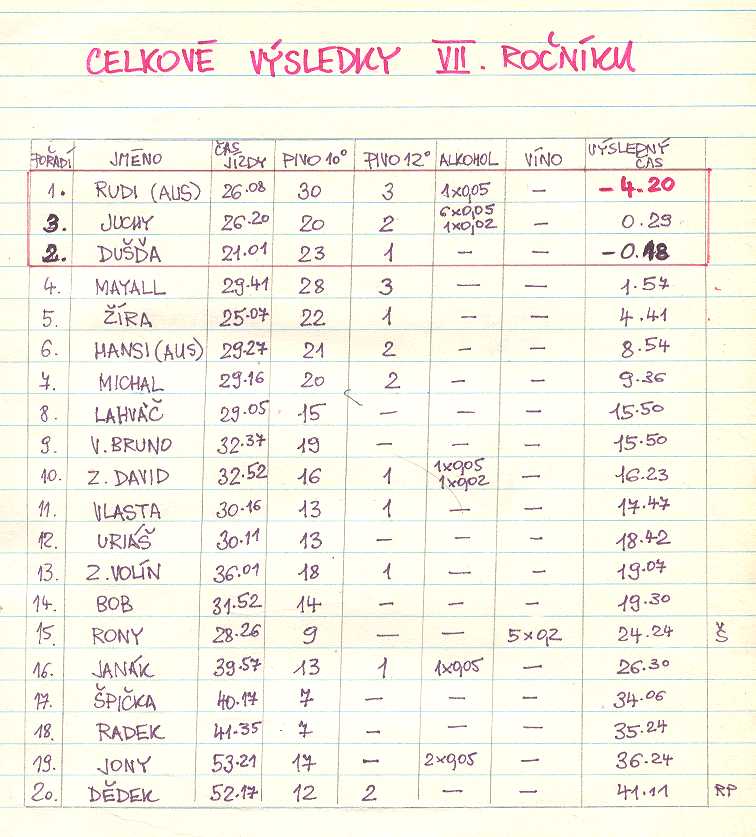 CELKOVÉ VÝSLEDKY VII. ROČNÍKU
POŘADÍ JMÉNO ČAS JÍZDY PIVO 10° PIVO 12° ALKOHOL VÍNO VÝSLEDNÝ ČAS
1. RUDI (AUS) 26.08 30 3 1x0,05 — -4.20
3. JUCHY 26.20 20 2 6x0,05 1x0,02 — 0.29
2. DUŠĎA 21.01 23 1 — — -0.18
4. MAYALL 29.41 28 3 — — 1.57
5. ŽÍRA 25.07 22 1 — — 4.41
6. HANSI (AUS) 29.27 21 2 — — 8.54
7. MICHAL 29.16 20 2 — — 9.36
8. LAHVÁČ 29.05 15 — — — 15.50
9. V. BRUNO 32.37 19 — — — 15.50
10. Z. DAVID 32.52 16 1 1x0,05 1x0,02 — 16.23
11. VLASTA 30.16 13 1 — — 17.47
12. URIÁŠ 30.11 13 — — — 18.42
13. Z. VOLÍN 36.01 18 1 — — 19.07
14. BOB 31.52 14 — — — 19.30
15. RONY 28.26 9 — — 5x0,2 24.24 Š
16. JANÁK 39.57 13 1 1x0,05 — 26.30
17. ŠPIČKA 40.17 7 — — — 34.06
18. RADEK 41.35 7 — — — 35.24
19. JONY 53.21 17 — 2x0,05 — 36.24
20. DĚDEK 52.17 12 2 — — 41.11 RP